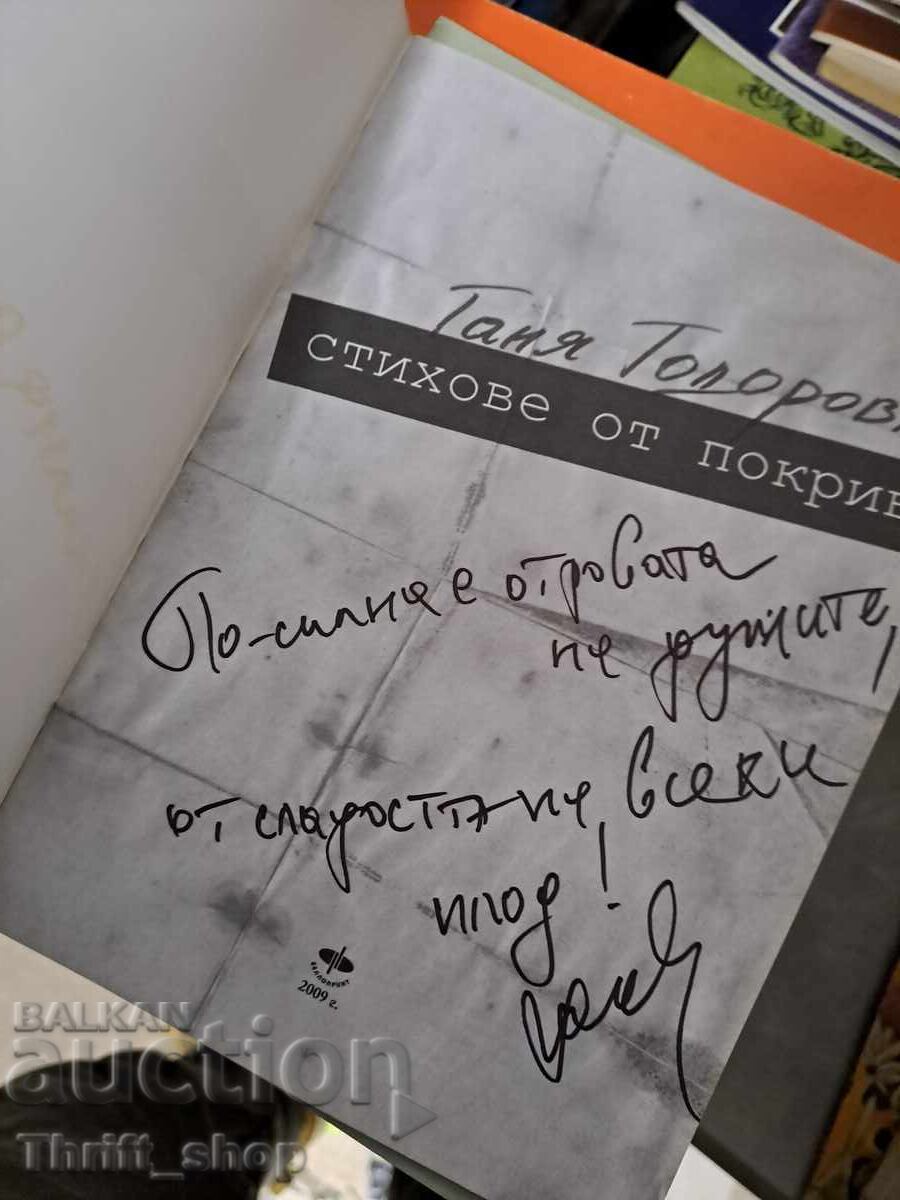 Таня Тодоров
СТИХОВЕ ОТ ПОКРИВ
По-силна е отровата
на ружите,
от сладостта на всеки
плод!
2009 г.
BALKAN
auction
Thrift_shop